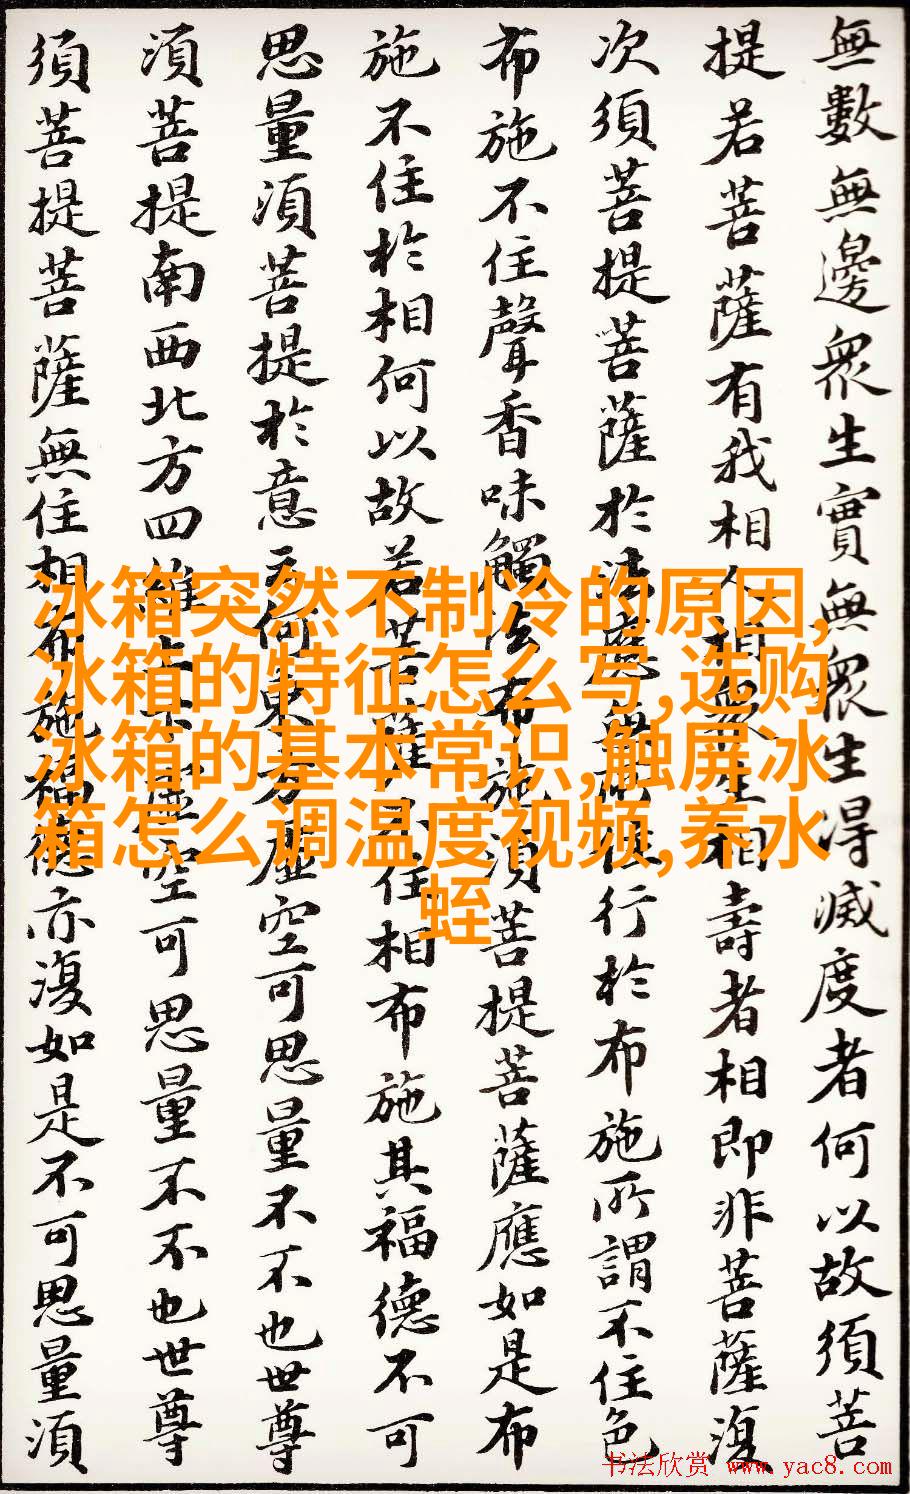 無數無邊衆生實無衆生得滅度者何以故須菩
提若菩薩有我相人相衆生相壽者相即非菩薩復
次須菩提菩薩於法應無所住行於布施所謂不住色
布施不住聲香味觸法布施須菩提菩薩應如是布
施不住於相何以故若菩薩不住相布施其福德不可
思量須菩提於意云何東方虛空可思量不不也世尊
須菩提南西北方四維上下虛空可思量不不也世尊
須菩提菩薩無住相布施福德亦復如是不可思量須
冰箱突然不制冷的原因,
冰箱的特征怎么写,选购
冰箱的基本常识,触屏冰
箱怎么调温度视频,养水
蛭
书法欣赏 www.yac8.com